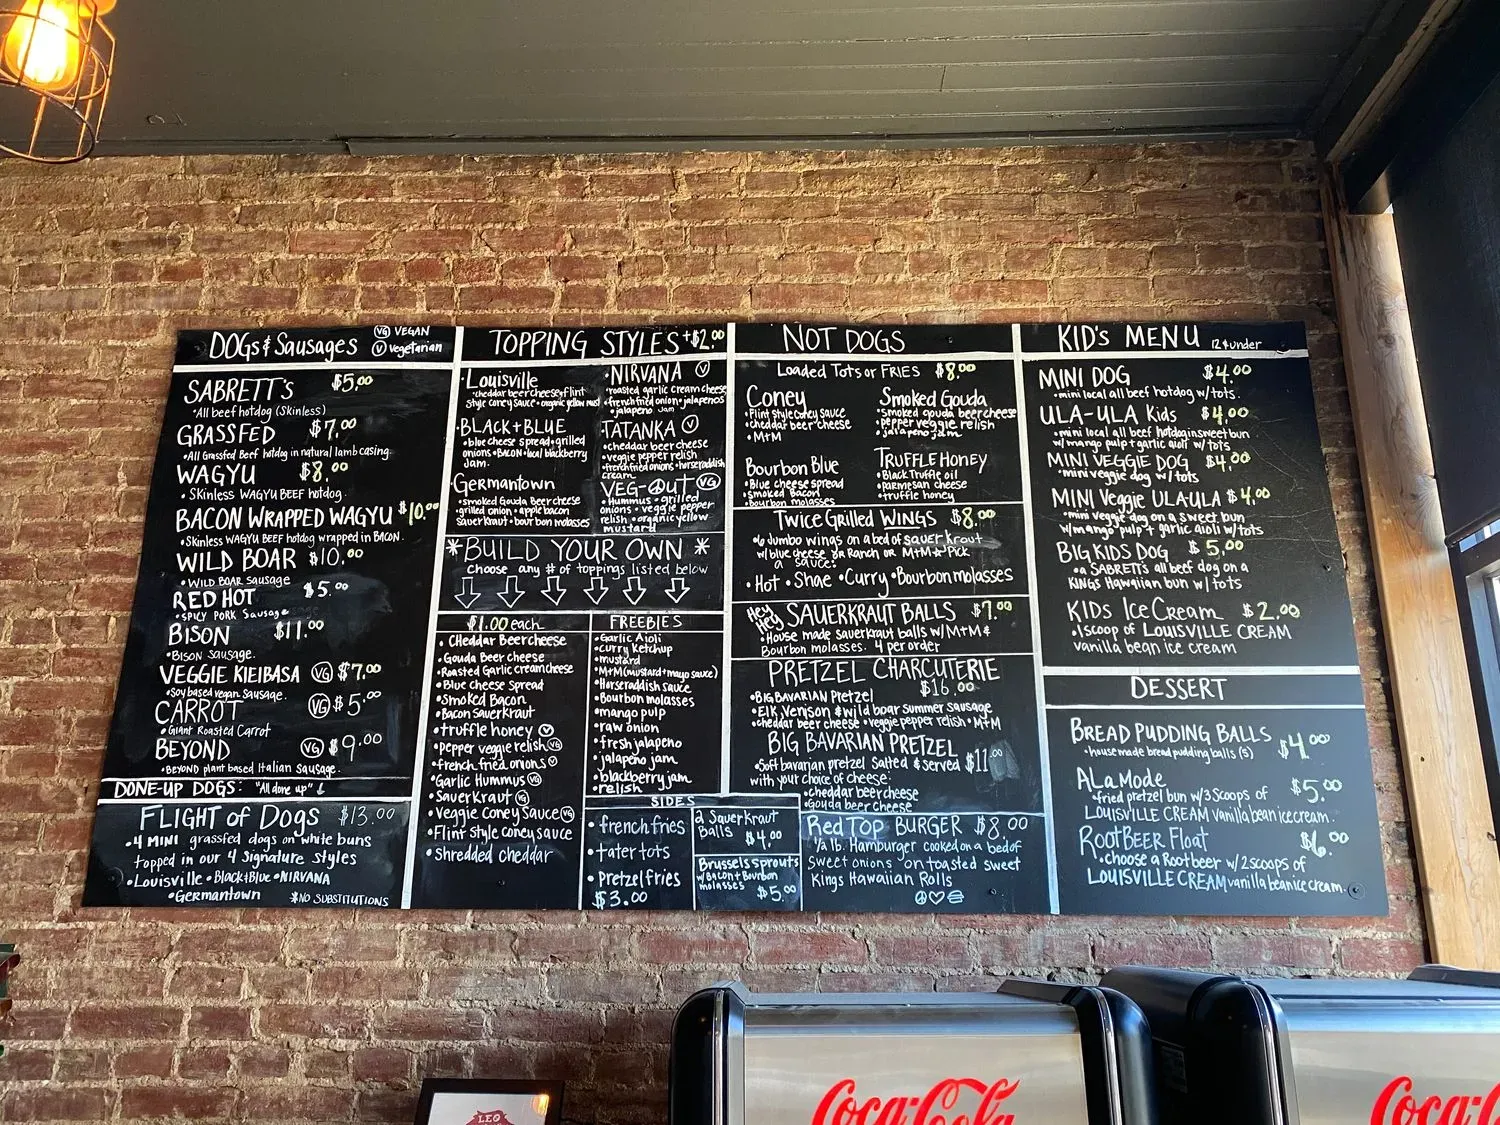 DOGS & Sausages
VG VEGAN
V vegetarian
SABRETT's $5.00
•All beef hotdog (Skinless)
GRASSFED $7.00
•All Grassfed Beef hotdog in natural lamb casing.
WAGYU $8.00
•Skinless WAGYU BEEF hotdog.
BACON WRAPPED WAGYU $10.00
•Skinless WAGYU BEEF hotdog wrapped in BACON.
WILD BOAR $10.00
•WILD BOAR sausage
RED HOT $5.00
•SPICY PORK Sausage
BISON $11.00
•BISON sausage.
VEGGIE KIELBASA VG $7.00
•Soy based vegan sausage.
CARROT VG $5.00
•Giant Roasted Carrot
BEYOND VG $9.00
•BEYOND plant based Italian Sausage.
DONE-UP DOGS: "All done up" ↓
FLIGHT of DOGS $13.00
•4 MINI grassfed dogs on white buns
topped in our 4 Signature styles
•Louisville •Black+Blue •NIRVANA
•Germantown *NO SUBSTITUTIONS
TOPPING STYLES +$2.00
•Louisville
•cheddar beer cheese •flint
style coney sauce •organic yellow must
•BLACK+BLUE
•blue cheese spread •grilled
onions •BACON •local blackberry
Jam.
•Germantown
•smoked Gouda Beer cheese
•grilled onion •apple bacon
sauerkraut •bourbon molasses
•NIRVANA V
•roasted garlic cream cheese
•french fried onion •jalapenos
•jalapeno Jam
TATANKA V
•cheddar beer cheese
•veggie pepper relish
•french fried onions •horseradish
cream
VEG-OUT VG
•Hummus •grilled
onions •veggie pepper
relish •organic yellow
mustard
*BUILD YOUR OWN*
choose any # of toppings listed below
$1.00 each
•Cheddar Beercheese
•Gouda Beer cheese
•Roasted Garlic creamcheese
•Blue cheese Spread
•Smoked Bacon
•Bacon Sauerkraut
•truffle honey V
•pepper veggie relish VG
•french fried onions V
•Garlic Hummus VG
•SauerKraut VG
•Veggie Coney Sauce VG
•Flint Style coney sauce
•Shredded cheddar
FREEBIES
•Garlic Aioli
•curry ketchup
•mustard
•M+M (mustard+mayo sauce)
•Horseradish sauce
•Bourbon molasses
•mango pulp
•raw onion
•fresh jalapeno
•jalapeno jam
•blackberry jam
•relish
SIDES
•french fries
•tater tots
•Pretzel fries
$3.00
2 Sauerkraut
Balls $4.00
Brussels sprouts
w/Bacon+Bourbon
molasses $5.00
NOT DOGS
Loaded Tots or FRIES $8.00
Coney
•Flint Style coney sauce
•cheddar beer cheese
•M+M
Smoked Gouda
•smoked gouda beer cheese
•pepper veggie relish
•jalapeno jam
Bourbon Blue
•Blue cheese spread
•smoked Bacon
•Bourbon molasses
TRUFFLE HONEY
•Black Truffle oil
•parmesan cheese
•truffle honey
Twice Grilled WINGS $8.00
•6 Jumbo wings on a bed of sauer kraut
w/ blue cheese or Ranch or M+M & Pick
a sauce:
•Hot •Shae •Curry •Bourbon molasses
Hey Hey SAUERKRAUT BALLS $7.00
•House made sauerkraut balls w/M+M &
Bourbon molasses. 4 per order
PRETZEL CHARCUTERIE
$16.00
•BIG BAVARIAN Pretzel
•Elk, Venison & wild boar summer sausage
•cheddar beer cheese •veggie pepper relish •M+M
BIG BAVARIAN PRETZEL
$11.00
•Soft bavarian pretzel Salted & served
with your choice of cheese:
•cheddar beer cheese
•Gouda beer cheese
Red TOP BURGER $8.00
1/2 lb. Hamburger cooked on a bed of
sweet onions on toasted sweet
Kings Hawaiian Rolls
KID's MENU 12 & under
MINI DOG $4.00
•mini local all beef hotdog w/ tots.
ULA-ULA Kids $4.00
•mini local all beef hotdog in sweet bun
w/ mango pulp + garlic aioli w/ tots
MINI VEGGIE DOG $4.00
•mini veggie dog w/ tots
MINI Veggie ULAULA $4.00
•mini veggie dog on a sweet bun
w/ mango pulp + garlic aioli w/tots
BIG KIDS DOG $5.00
•a SABRETTS all beef dog on a
KINGS Hawaiian bun w/ tots
KIDs Ice Cream $2.00
•1 scoop of LOUISVILLE CREAM
vanilla bean ice cream
DESSERT
BREAD PUDDING BALLS $4.00
•house made bread pudding balls (5)
ALaMode $5.00
•fried pretzel bun w/ 3 Scoops of
LOUISVILLE CREAM Vanilla bean ice cream.
ROOTBEER Float $6.00
•choose a Rootbeer w/ 2 scoops of
LOUISVILLE CREAM vanilla bean ice cream.
LEO
Coca-Cola
Coca-Co